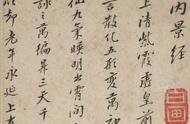 内景經
上清紫霞虛皇前
言散化五形變萬神
仙九氣映明出霄間
詠之萬遍昇三天千
以却老年永延上